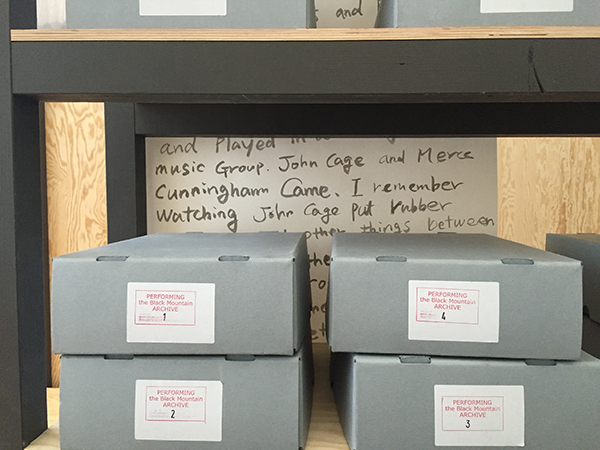 and
and Played in
music Group. John Cage and Merce
Cunningham Came. I remember
Watching John Cage Put rubber
other things between
PERFORMING
the Black Mountain
ARCHIVE
1
PERFORMING
the Black Mountain
ARCHIVE
4
PERFORMING
the Black Mountain
ARCHIVE
2
PERFORMING
the Black Mountain
ARCHIVE
3